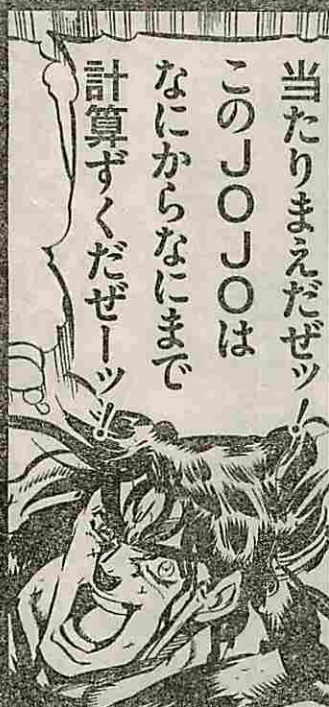 当たりまえだぜッ!
このJOJOは
なにからなにまで
計算ずくだぜーッ!